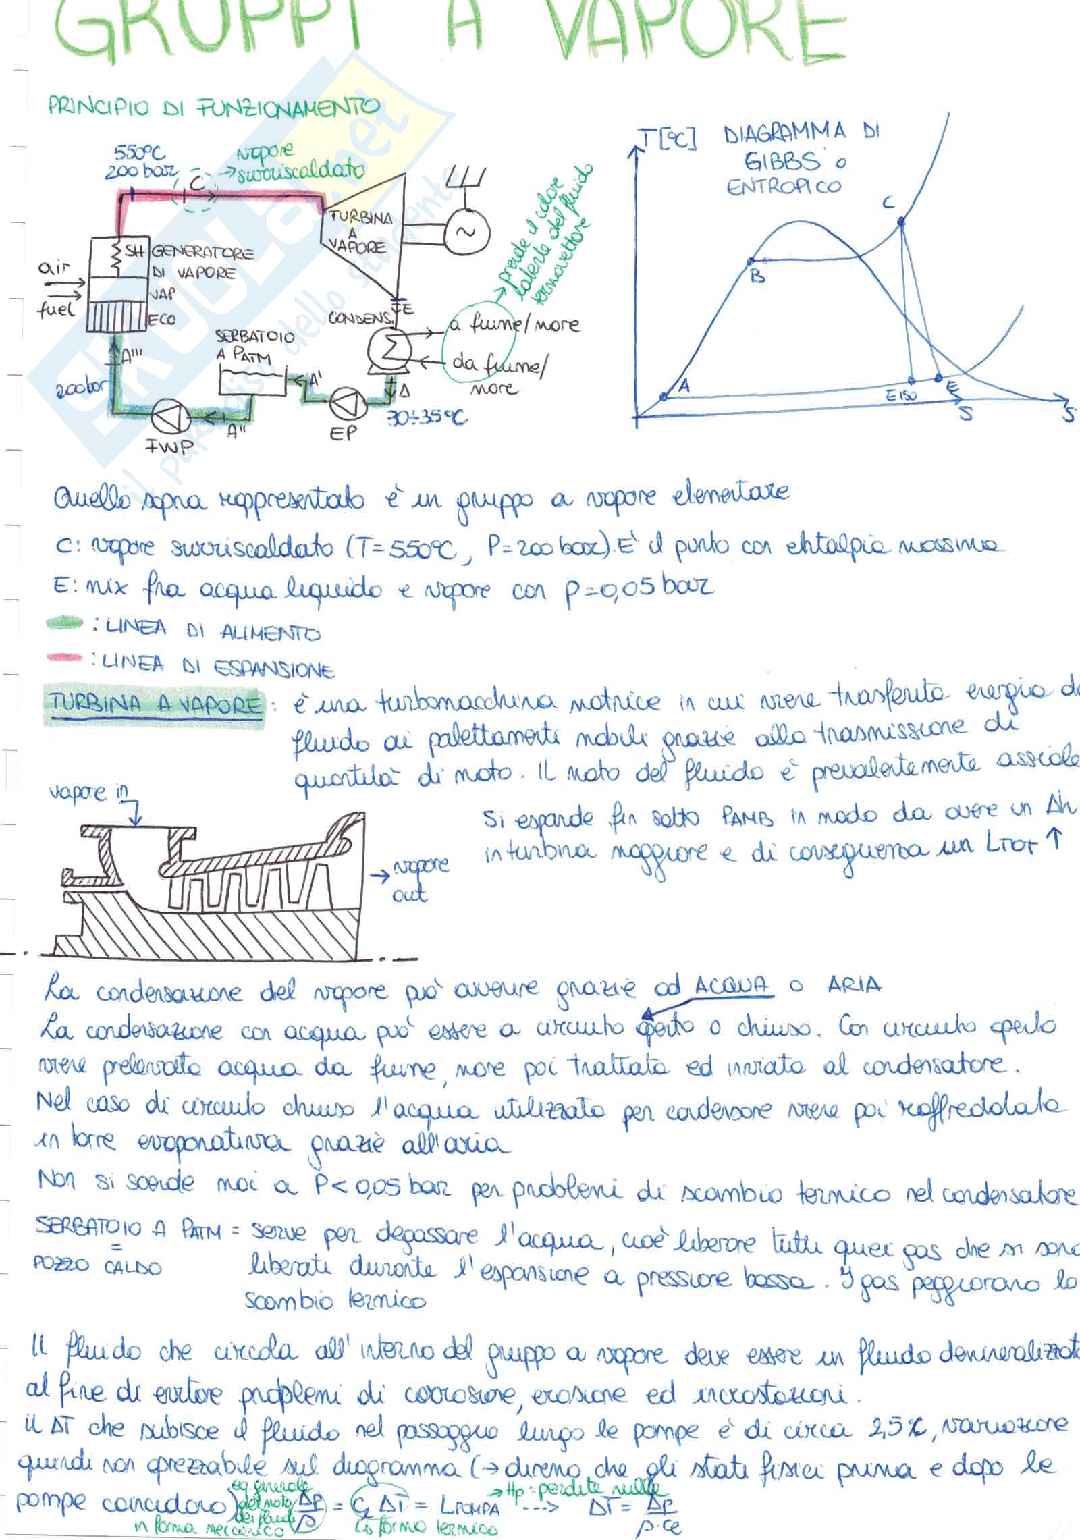 GRUPPI A VAPORE
PRINCIPIO DI FUNZIONAMENTO
550°C
200 bar
C
vapore
surriscaldato
SH
GENERATORE
DI VAPORE
VAP
ECO
air
fuel
A'''
200 bar
FWP
A''
SERBATOIO
A PATM
A'
EP
A
30÷35°C
TURBINA
A
VAPORE
~
E
CONDENS.
a fiume/mare
da fiume/
mare
prende il calore
latente del fluido
termovettore
T[°C]
DIAGRAMMA DI
GIBBS o
ENTROPICO
C
B
A
E ISO
E
S
S
Quello sopra rappresentato è un gruppo a vapore elementare
C: vapore surriscaldato (T=550°C, P=200 bar). È il punto con entalpia massima
E: mix fra acqua liquida e vapore con p=0,05 bar
: LINEA DI ALIMENTO
: LINEA DI ESPANSIONE
TURBINA A VAPORE: è una turbomacchina motrice in cui viene trasferita energia da
fluido ai palettamenti mobili grazie alla trasmissione di
quantità di moto. Il moto del fluido è prevalentemente assiale
vapore in
vapore
out
Si espande fin sotto PAMB in modo da avere un Δh
in turbina maggiore e di conseguenza un LTOT ↑
La condensazione del vapore può avvenire grazie ad ACQUA o ARIA
La condensazione con acqua può essere a circuito aperto o chiuso. Con circuito aperto
viene prelevata acqua da fiume, mare poi trattata ed inviata al condensatore.
Nel caso di circuito chiuso l'acqua utilizzata per condensare viene poi raffreddata
in torre evaporativa grazie all'aria
Non si scende mai a P<0,05 bar per problemi di scambio termico nel condensatore
SERBATOIO A PATM = serve per degassare l'acqua, cioè liberare tutti quei gas che si sono
=
POZZO CALDO
liberati durante l'espansione a pressione bassa. I gas peggiorano lo
scambio termico
Il fluido che circola all'interno del gruppo a vapore deve essere un fluido demineralizzato
al fine di evitare problemi di corrosione, erosione ed incrostazioni.
il ΔT che subisce il fluido nel passaggio lungo le pompe è di circa 2,5°C, variazione
quindi non apprezzabile sul diagramma (→ diremo che gli stati fisici prima e dopo le
pompe coincidono)
eq generale
del moto
dei fluidi
in forma meccanica
Δp/ρ = Cₑ ΔT = LPOMPA ---> ΔT = Δp/ρ·ce
in forma termica
Hp: perdite nulle
SKUOLA.net